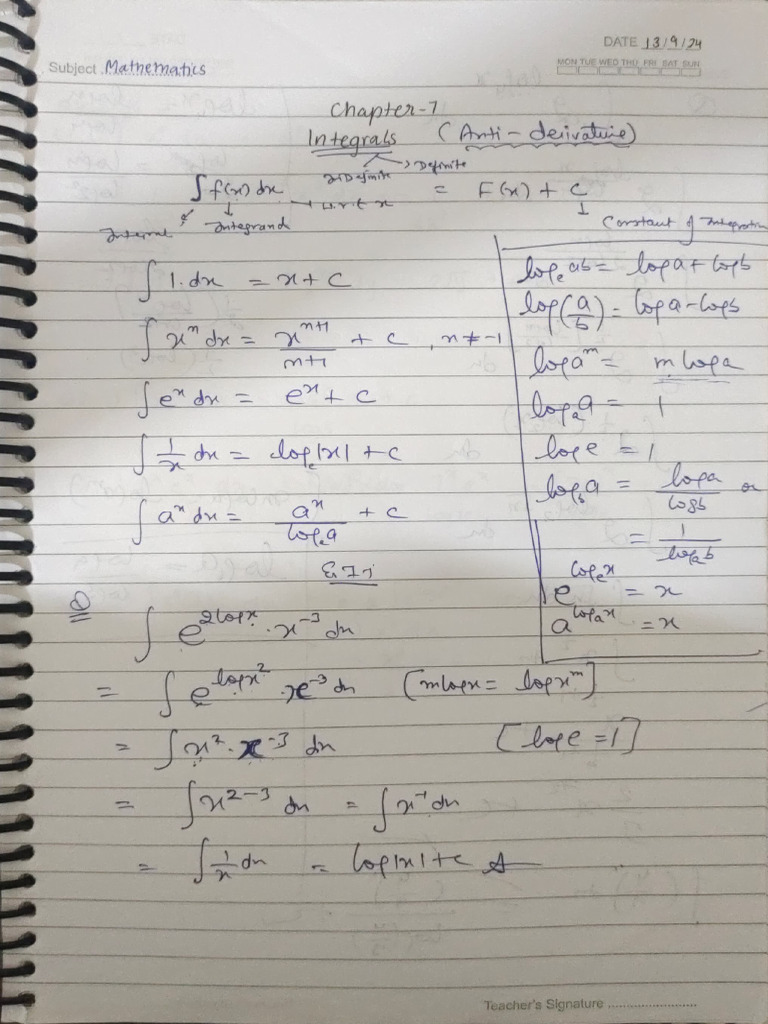 DATE 13/9/24
Subject Mathematics
MON TUE WED THU FRI SAT SUN
Chapter-7
Integrals (Anti-derivative)
Definite
∫ f(x) dx = F(x) + C
w.r.t x
Integrand
Constant of Integration
∫ 1. dx = x + C
∫ xⁿ dx = xⁿ⁺¹/n+1 + C , n ≠ -1
∫ eˣ dx = eˣ + C
∫ 1/x dx = logₑ|x| + C
∫ aˣ dx = aˣ/logₑa + C
logₑ ab = log a + log b
log(a/b) = log a - log b
log aᵐ = m log a
logₐ a = 1
log e = 1
log_b a = log a/log b or
= 1/logₐ b
e^(logₑ x) = x
a^(logₐ x) = x
Q
∫ e^(2logx) . x⁻³ dx
= ∫ e^(logx²) . x⁻³ dx [m log x = log xᵐ]
= ∫ x² . x⁻³ dx [log e = 1]
= ∫ x²⁻³ dx = ∫ x⁻¹ dx
= ∫ 1/x dx = log|x| + C
Teacher's Signature ........................